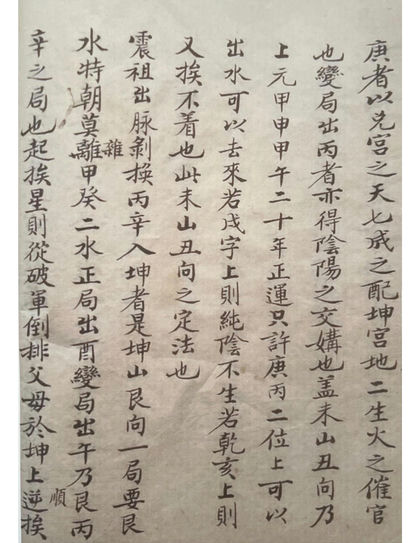 庚者以兌宮之天七成之配坤宮地二生火之催官
也變局出丙者亦得陰陽之交媾也蓋未山丑向乃
上元甲申甲午二十年正運只許庚丙二位上可以
出水可以去來若戌字上則純陰不生若乾亥上則
又挨不着也此未山丑向之定法也
震祖出脉剝換丙辛入坤者是坤山艮向一局要艮
水特朝莫離雜甲癸二水正局出酉變局出午乃艮丙
辛之局也起挨星則從破軍倒排父母於坤上逆挨順